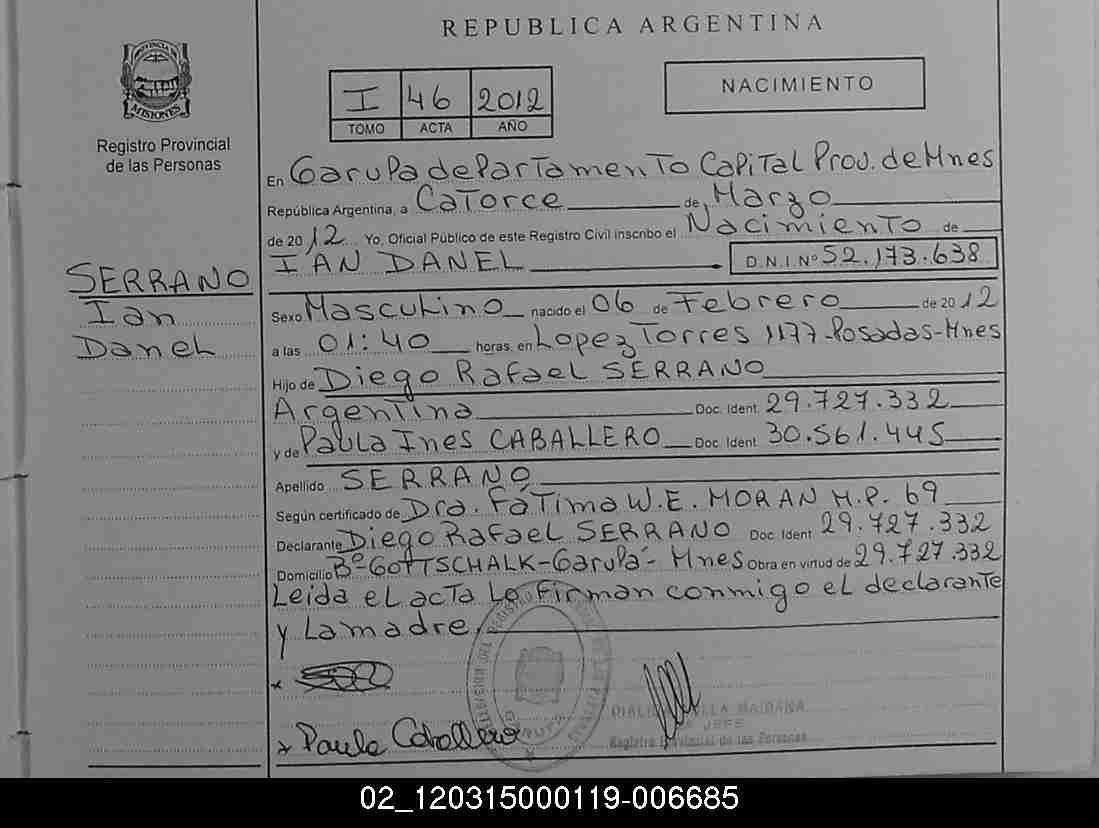 REPUBLICA ARGENTINA
PROVINCIA DE
MISIONES
Registro Provincial
de las Personas
I 46 2012
TOMO ACTA AÑO
NACIMIENTO
En Garupa departamento Capital Prov. de Mnes
República Argentina, a Catorce de Marzo
de 2012 Yo, Oficial Público de este Registro Civil inscribo el Nacimiento de
IAN DANEL D.N.I. Nº 52.173.638
SERRANO
Ian
Danel
Sexo Masculino nacido el 06 de Febrero de 2012
a las 01:40 horas, en Lopez Torres 1177-Posadas-Mnes
Hijo de Diego Rafael SERRANO
Argentina Doc. Ident. 29.727.332
y de Paula Ines CABALLERO Doc. Ident. 30.561.445
Apellido SERRANO
Según certificado de Dra. Fátima W.E. MORAN M.P. 69
Declarante Diego Rafael SERRANO Doc. Ident. 29.727.332
Domicilio Bº GOTTSCHALK-Garupá- Mnes Obra en virtud de 29.727.332
Leida el acta Lo firman conmigo el declarante
y La madre.
Paula Caballero
JEFE
Registro Provincial de las Personas
02_120315000119-006685